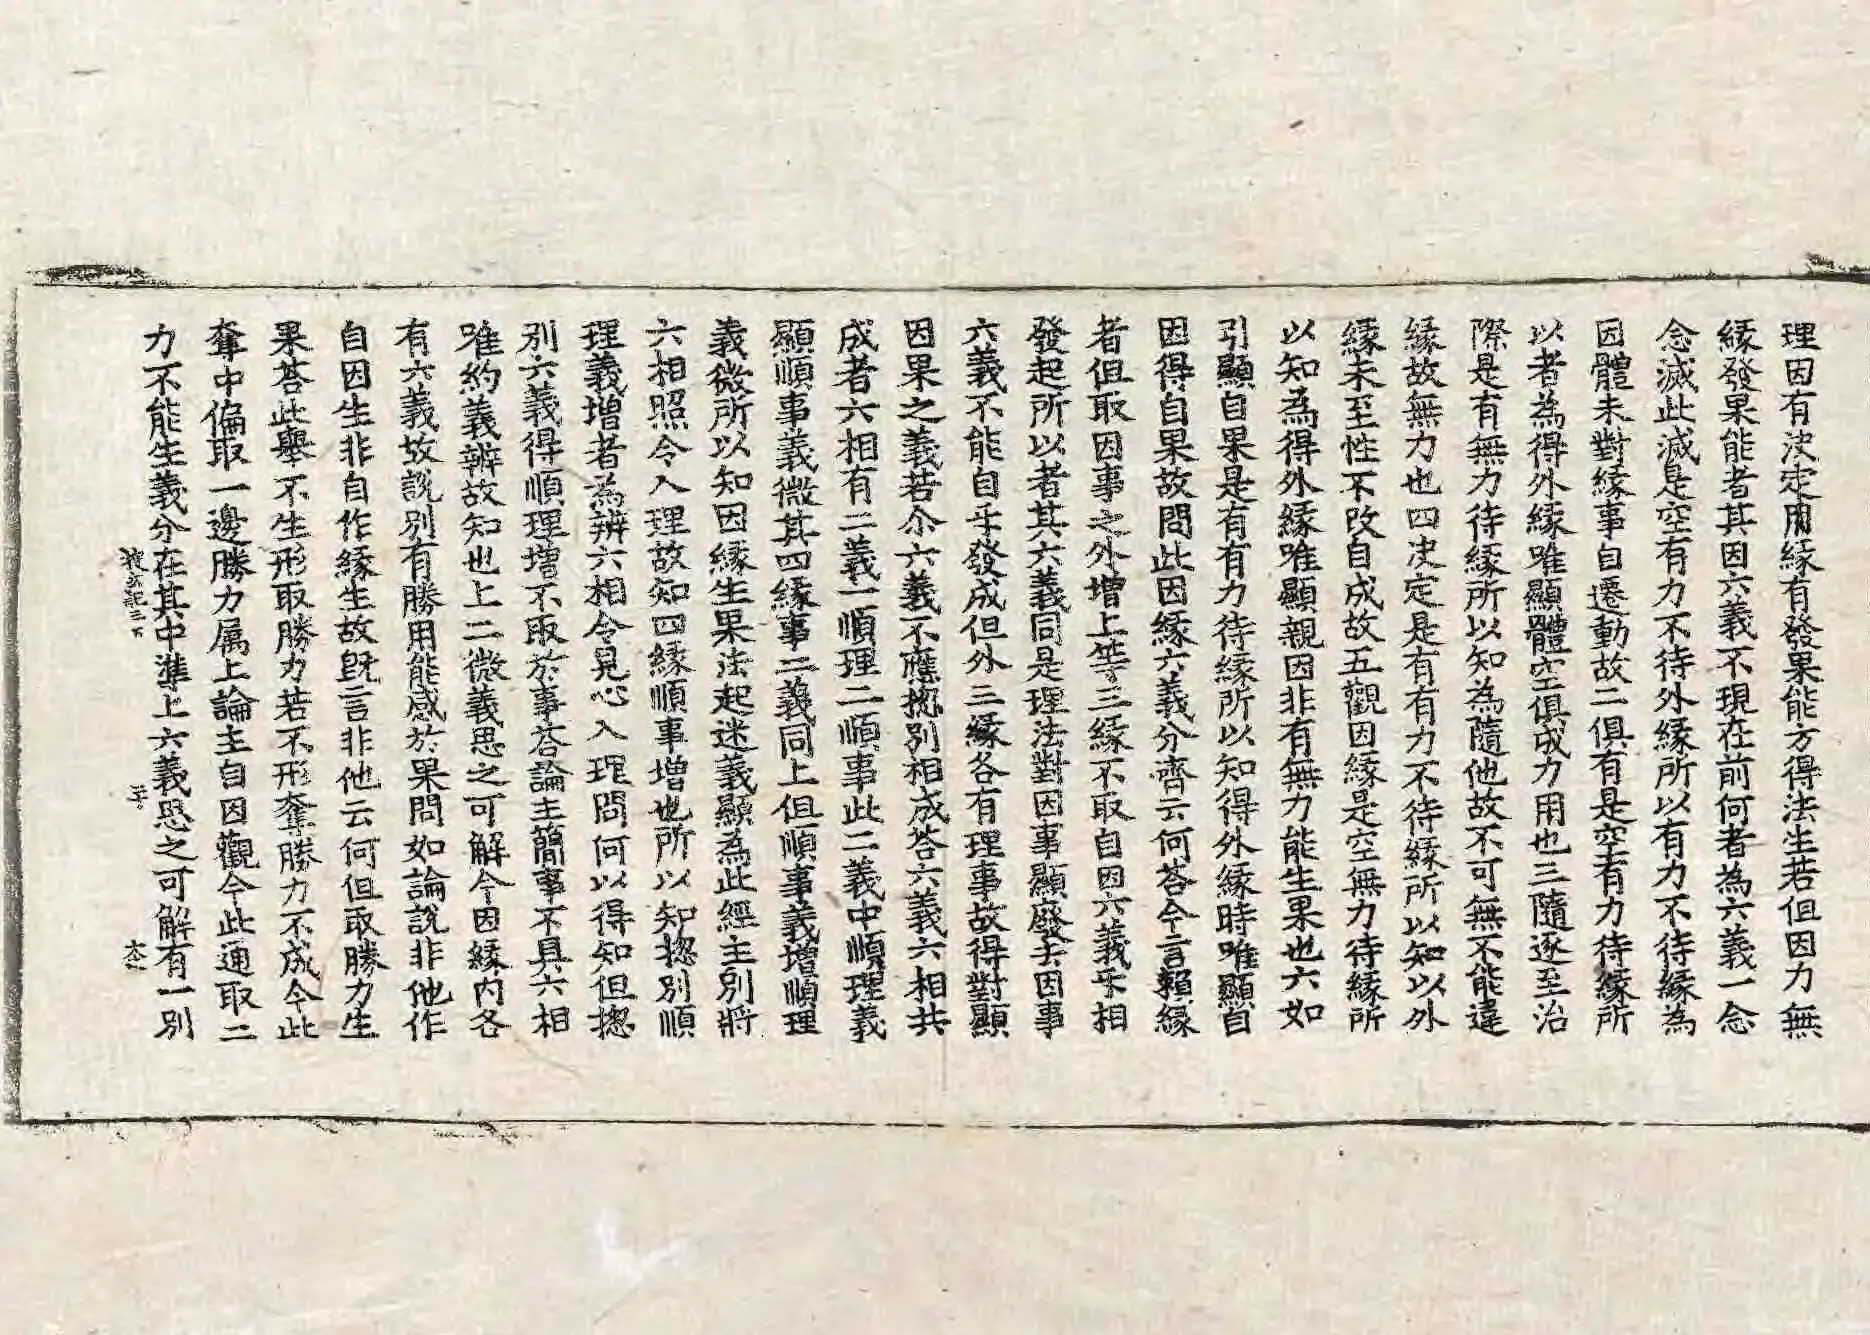 理因有決定用緣有發果能方得法生若但因力無
緣發果能者其因六義不現在前何者為六義一念
念滅此滅是空有力不待外緣所以有力不待緣為
因體未對緣事自遷動故二俱有是空有力待緣所
以者為得外緣唯顯體空俱成力用也三隨逐至治
際是有無力待緣所以知為隨他故不可無不能違
緣故無力也四決定是有有力不待緣所以知以外
緣未至性不改自成故五觀因緣是空無力待緣所
以知為得外緣唯顯親因非有無力能生果也六如
引顯自果是有有力待緣所以知得外緣時唯顯自
因得自果故問此因緣六義分齊云何答今言賴緣
者但取因事之外增上等三緣不取自因六義乎相
發起所以者其六義同是理法對因事顯廢去因事
六義不能自乎發成但外三緣各有理事故得對顯
因果之義若尒六義不應揔別相成答六義六相共
成者六相有二義一順理二順事此二義中順理義
顯順事義微其四緣事二義同上但順事義增順理
義微所以知因緣生果法起迷義顯為此經主別將
六相照令入理故知四緣順事增也所以知揔別順
理義增者為辨六相令見心入理問何以得知但揔
別六義得順理增不取於事答論主簡事不具六相
唯約義辨故知也上二微義思之可解今因緣內各
有六義故說別有勝用能感於果問如論說非他作
自因生非自作緣生故旣言非他云何但取勝力生
果答此舉不生形取勝力若不形奪勝力不成今此
奪中偏取一邊勝力属上論主自因觀今此通取二
力不能生義分在其中準上六義思之可解有一別